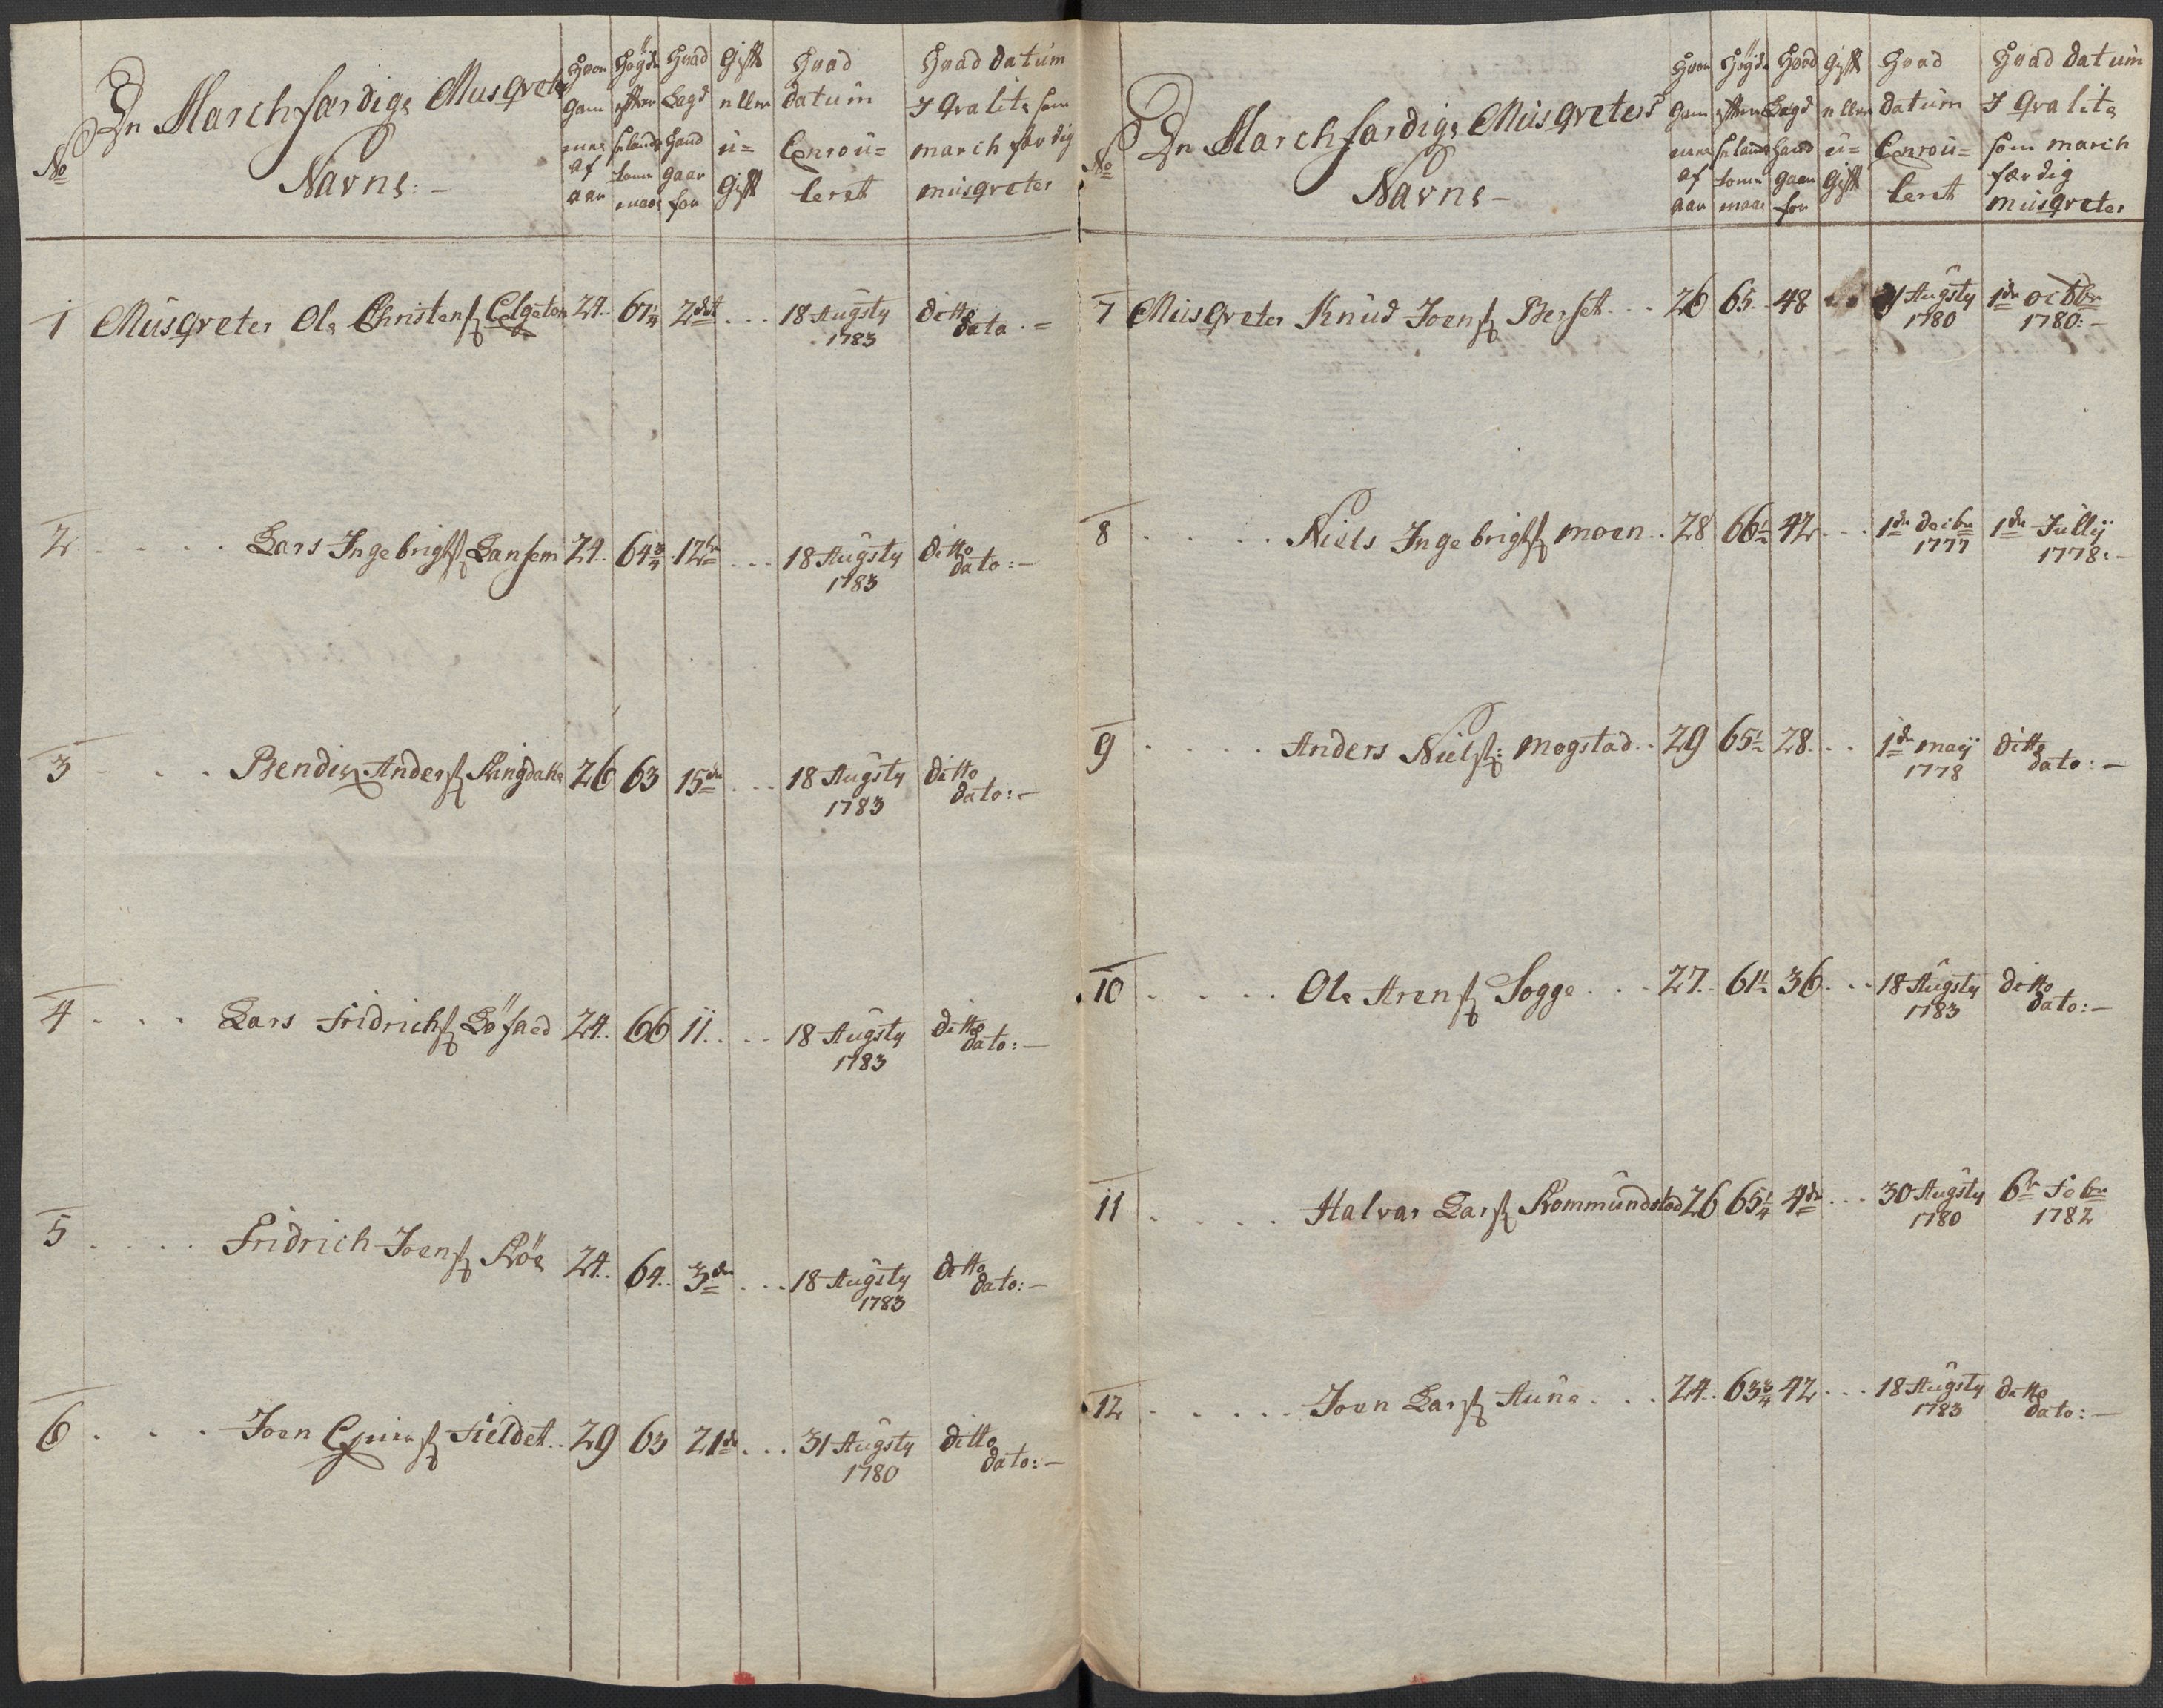 No
De Marchfærdige Musqveter
Navne:-
Hvor gammel af aar
Høyde efter Selands tomme maal
Hvad Lægd Hand gaar for
Gift eller u=gift
Hvad datum Enrou=leret
Hvad datum I Qvalite som march færdig musqveter
1 Musqveter Ole Christens: 24.. 67¼ 2det ... 18 Augsty 1783 ditto dato.=
2 .... Lars Ingebrigts: Lansem 24.. 64¾ 12te ... 18 Augsty 1783 ditto dato:-
3 ... Bendix Anders: Ringdalle 26 63 15de ... 18 Augsty 1783 ditto dato:-
4 ... Lars Fridrichs: Löfaed 24.. 66 11.... 18 Augsty 1783 ditto dato:-
5 .... Fridrich Joens: Röe 24.. 64.. 3de ... 18 Augsty 1783 ditto dato:-
6 ... Joen Fieldet.. 29 63 21de ... 31 Augsty 1780 ditto dato:-
No
De Marchfærdige Musqveters
Navne-
Hvor gammel af aar
Høyde efter Selands tomme maal
Hvad Lægd Hand gaar for
Gift eller u=gift
Hvad datum Enrou=leret
Hvad datum I Qvalite som march færdig musqveter
7 Musqveter Knud Joens: Berset... 26 65.. 48 Augsty 1780 1de octbr 1780:-
8 .... Niels Ingebrigts: moen.. 28 66½ 42... 1de decbr 1777 1de Jullij 1778:-
9 .... Anders Niels: mogstad.. 29 65½ 28... 1de maij 1778 ditto dato:-
10 .... Ole Arens: Sogge... 27.. 61½ 36... 18 Augsty 1783 ditto dato:-
11 .... Halvar Lars: Rommundstad 26 65¼ 4de ... 30 Augsty 1780 6te Febr 1782
12 ..... Joen Lars: Aune... 24.. 63¾ 42... 18 Augsty 1783 ditto dato:-